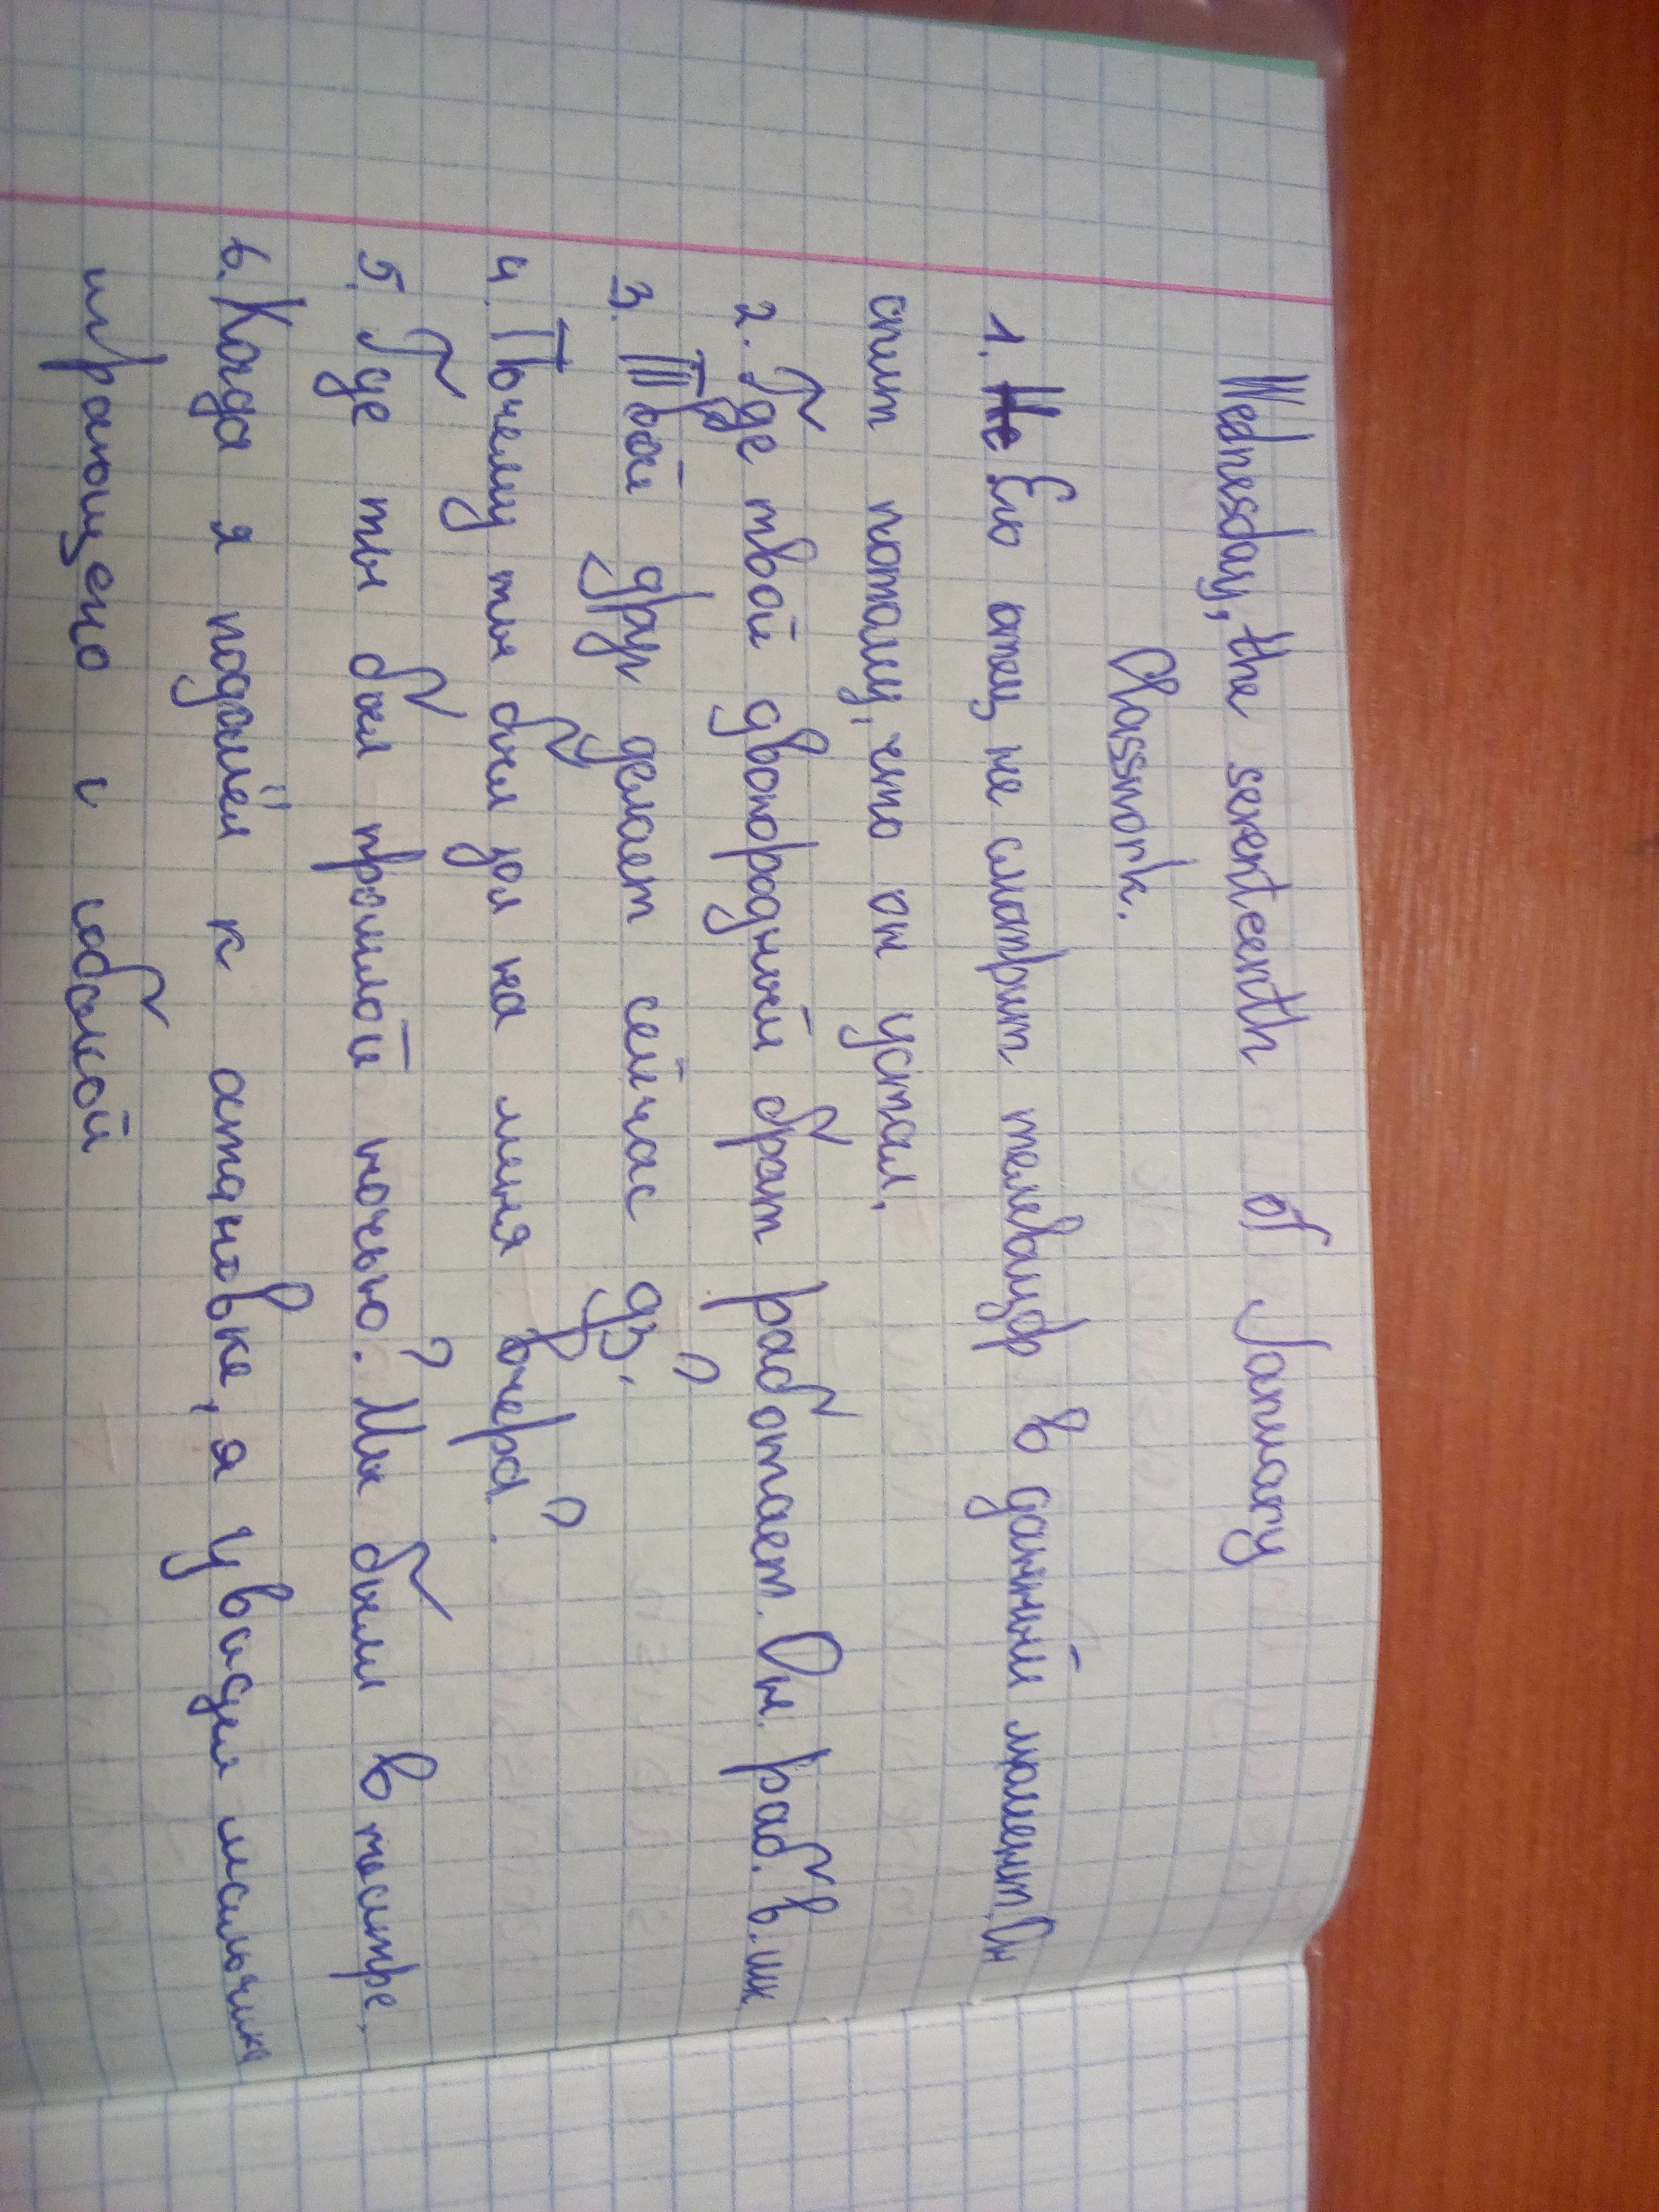 Wednesday, the seventeenth of January
Classwork.
1. Его отец не смотрит телевизор в данный момент. Он
спит потому, что он устал.
2. Где твой двоюродный брат работает. Он. раб. в. шк.
3. Твой друг делает сейчас дз. ?
4. Почему ты был зол на меня вчера. ?
5. Где ты был прошлой ночью. ? Мы были в театре.
6. Когда я подошёл к остановке, я увидел мальчика
играющего с собакой